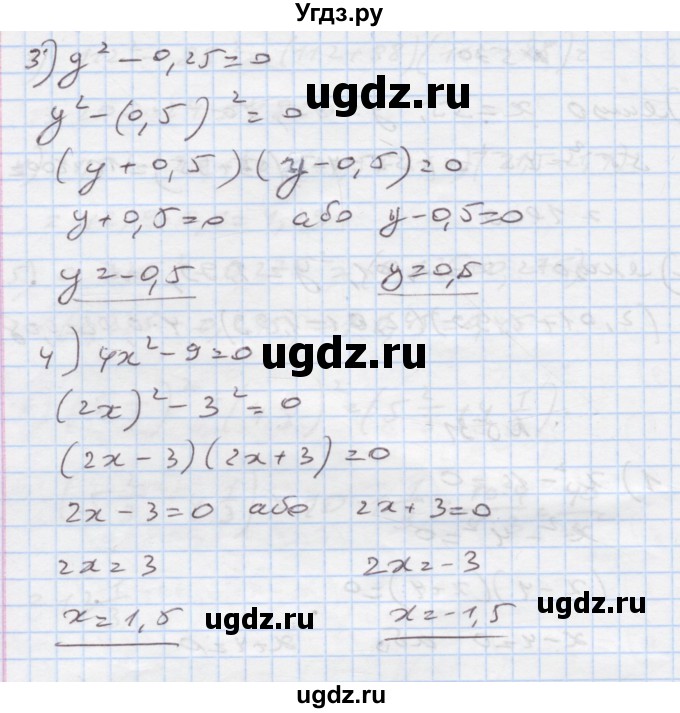 Угдз.ру
3) y² - 0,25 = 0
ugdz.ru
y² - (0,5)² = 0
(y + 0,5)(y - 0,5) = 0
y + 0,5 = 0 або y - 0,5 = 0
y = -0,5 y = 0,5
4) 4x² - 9 = 0
ugdz.ru
(2x)² - 3² = 0
(2x - 3)(2x + 3) = 0
2x - 3 = 0 або 2x + 3 = 0
2x = 3 2x = -3
x = 1,5 x = -1,5
ugdz.ru ugdz.ru
ugdz.ru